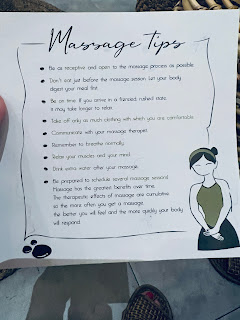 Massage Tips
Be as receptive and open to the massage process as possible.
Don't eat just before the massage session. Let your body
digest your meal first.
Be on time. If you arrive in a frenzied, rushed state,
it may take longer to relax.
Take off only as much clothing with which you are comfortable.
Communicate with your massage therapist.
Remember to breathe normally.
Relax your muscles and your mind.
Drink extra water after your massage.
Be prepared to schedule several massage sessions.
Massage has the greatest benefits over time.
The therapeutic effects of massage are cumulative
so the more often you get a massage,
the better you will feel and the more quickly your body
will respond.